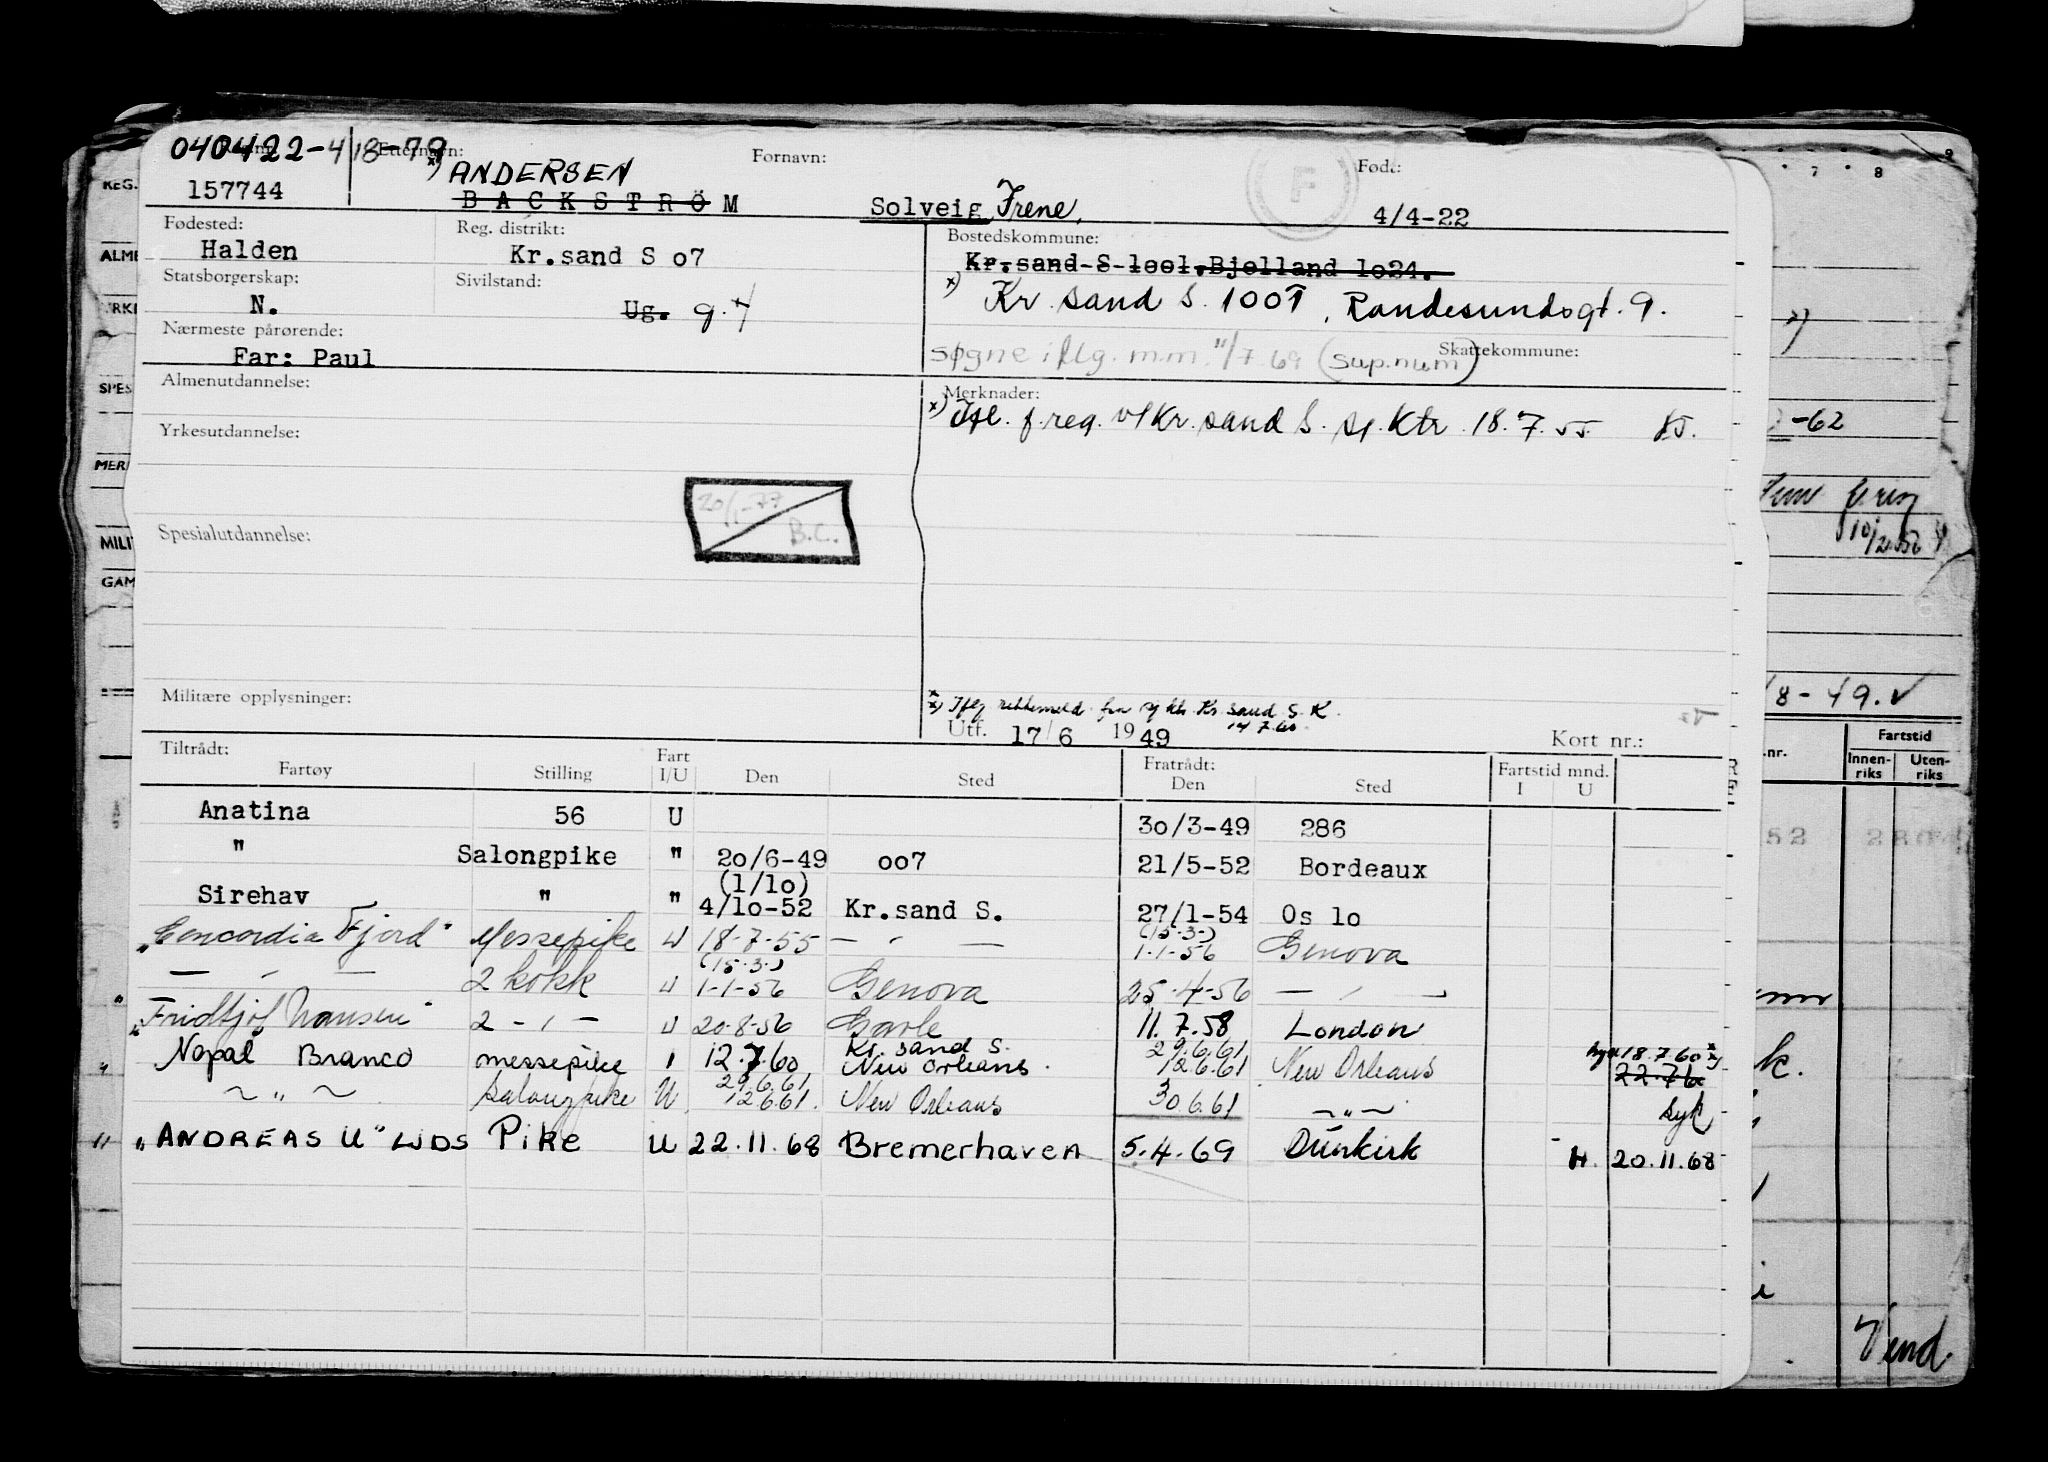 040422-418-79
Etternavn: Fornavn: Født:
157744 x) ANDERSEN
BACKSTRÖM Solveig Irene, F 4/4-22
Fødested: Reg. distrikt: Bostedskommune:
Halden Kr.sand S o7 Kr.sand S lool, Bjelland lo24.
Statsborgerskap: Sivilstand:
N. Ug. g. x) Kr. sand S. 1001, Randesundsgt. 9.
Nærmeste pårørende: Skattekommune:
Far: Paul søgne iflg. m.m. 11/7 69 (sup.num)
Almenutdannelse: Merknader:
x) Ifl. f.reg. v/Kr.sand S. sj. Ktr. 18.7.55
Yrkesutdannelse:
20/1-77 B.C.
Spesialutdannelse:
Militære opplysninger:
Kr sand S. K. 14.7.60
Utf. 17/6 1949 Kort nr.:
Tiltrådt: Fratrådt: Fartstid mnd.
Fartøy Stilling Fart I/U Den Sted Den Sted I U
Anatina 56 U 3o/3-49 286
" Salongpike " 2o/6-49 oo7 21/5-52 Bordeaux
Sirehav " " (1/1o) 4/1o-52 Kr.sand S. 27/1-54 Os lo
"Concordia Fjord" Messepike U 18-7-55 — " — (15.3.) 1-1-56 Genova
— " — 2 kokk U (15.3.) 1-1-56 Genova 25-4-56 — " —
"Fridtjof Nansen" 2 - " - U 20-8-56 11.7.58 London
Nopal Branco messepike " 12.7.60 Kr. sand S. New Orleans 29.6.61 12.6.61 New Orleans 18.7.60 22.7.60
~ " ~ Salongpike U 29.6.61 12.6.61. New Orleans 30.6.61 ~ " ~ Syk
" "ANDREAS U" LJDS Pike U 22.11.68 Bremerhaven 5.4.69 Dünkirk H. 20.11.68
REG.
ALME
SPES
MER
MILI
GAM
7 8 9
-62
8-49.
.nr. Fartstid
Innen-riks Uten-riks
52
k.
Vend